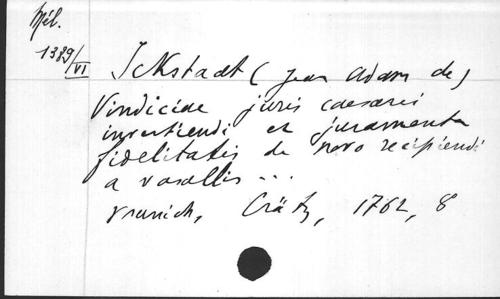 Mél.
1389/VI
Ickstadt (Jean Adam de)
Vindiciae juris caesarei
investiendi et juramenta
fidelitatis de novo recipiendi
a vasallis ...
Munich, Crätz, 1762, 8°